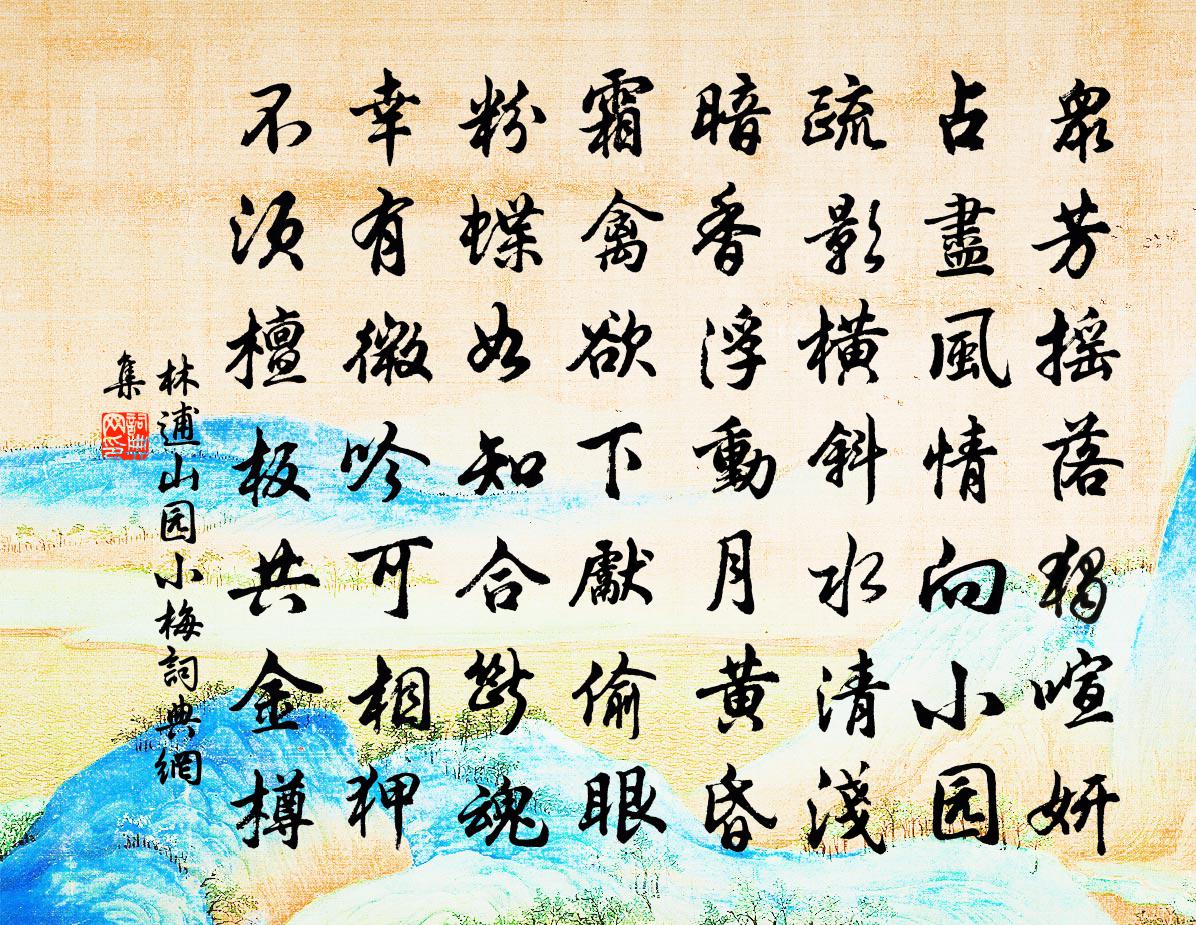 眾芳搖落獨喧妍
占盡風情向小园
疏影橫斜水清淺
暗香浮動月黃昏
霜禽欲下獻偷眼
粉蝶如知合斷魂
幸有微吟可相狎
不須檀板共金樽
林逋山园小梅詞典網
集
詞典